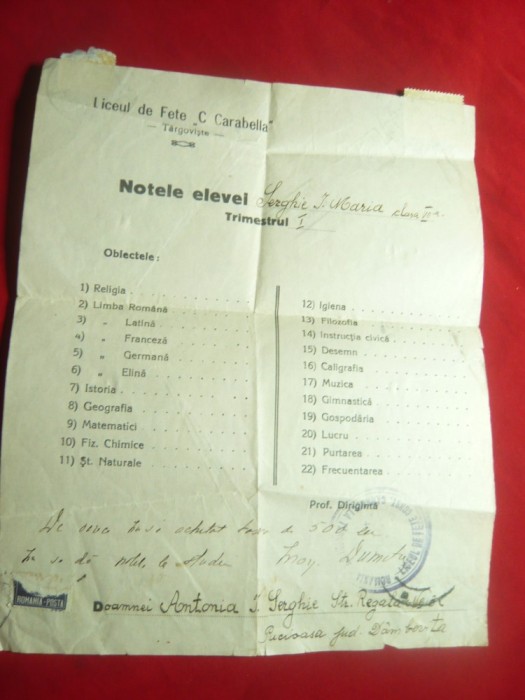 Liceul de Fete "C Carabella"
— Târgoviște —
Notele elevei Serghie I. Maria clasa II a
Trimestrul I
Obiectele:
1) Religia
2) Limba Română
3) „ Latină
4) „ Franceză
5) „ Germană
6) „ Elină
7) Istoria
8) Geografia
9) Matematici
10) Fiz. Chimice
11) Șt. Naturale
12) Igiena
13) Filozofia
14) Instrucția civică
15) Desemn
16) Caligrafia
17) Muzica
18) Gimnastică
19) Gospodăria
20) Lucru
21) Purtarea
22) Frecuentarea
Prof. Dirigintă
achitat taxa de 500 lei
nu se dă
ROMANIA-POSTA
Doamnei Antonia I. Serghie Str. Regală
Pucioasa jud. Dâmbovița